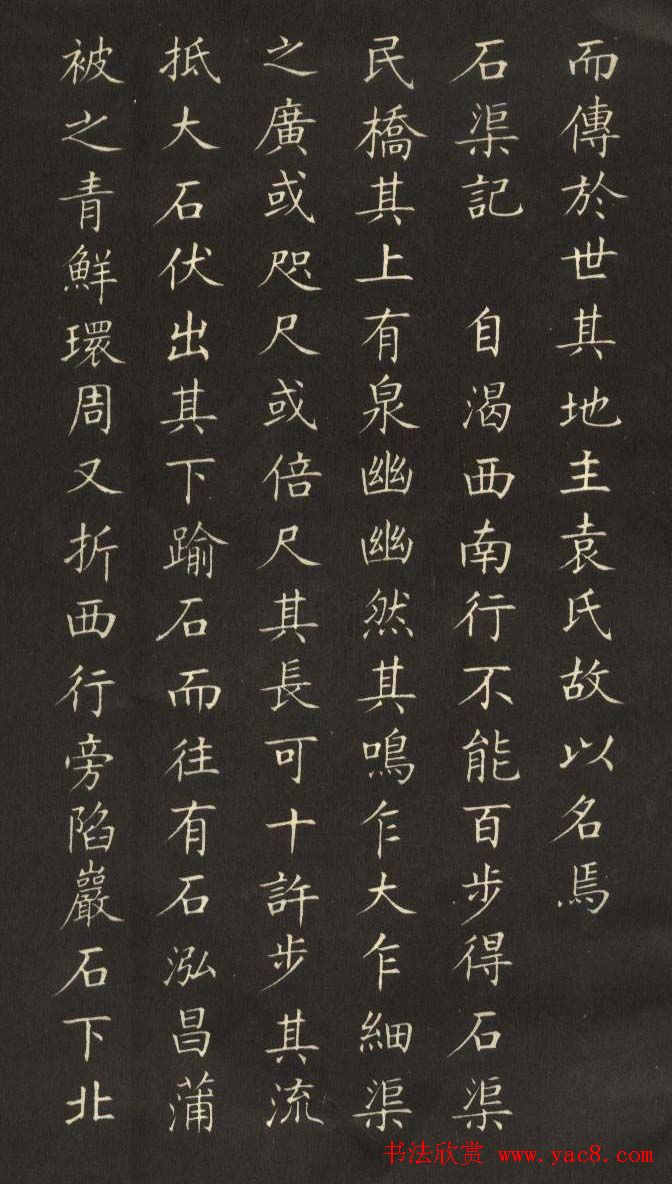 而傳於世其地主袁氏故以名焉
石渠記 自渴西南行不能百步得石渠
民橋其上有泉幽幽然其鳴乍大乍細渠
之廣或咫尺或倍尺其長可十許步其流
抵大石伏出其下踰石而往有石泓昌蒲
被之青鮮環周又折西行旁陷巖石下北
书法欣赏 www.yac8.com